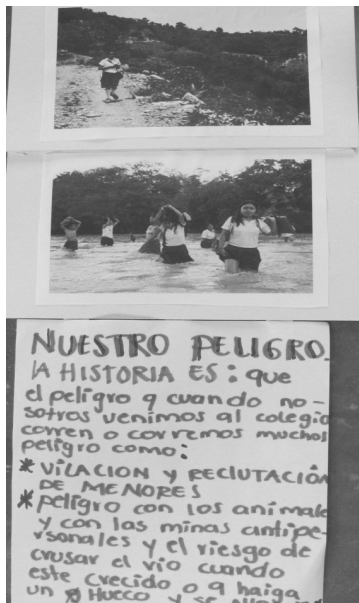 NUESTRO PELIGRO.
LA HISTORIA ES: que
el peligro q cuando no-
sotros venimos al colegio
corren o corremos muchos
peligro como:
* VILACION Y RECLUTACIÓN
DE MENORES
* peligro con los animale
y con las minas antipe-
rsonales y el riesgo de
crusar el rio cuando
este crecido o q haiga
un HUECO y se